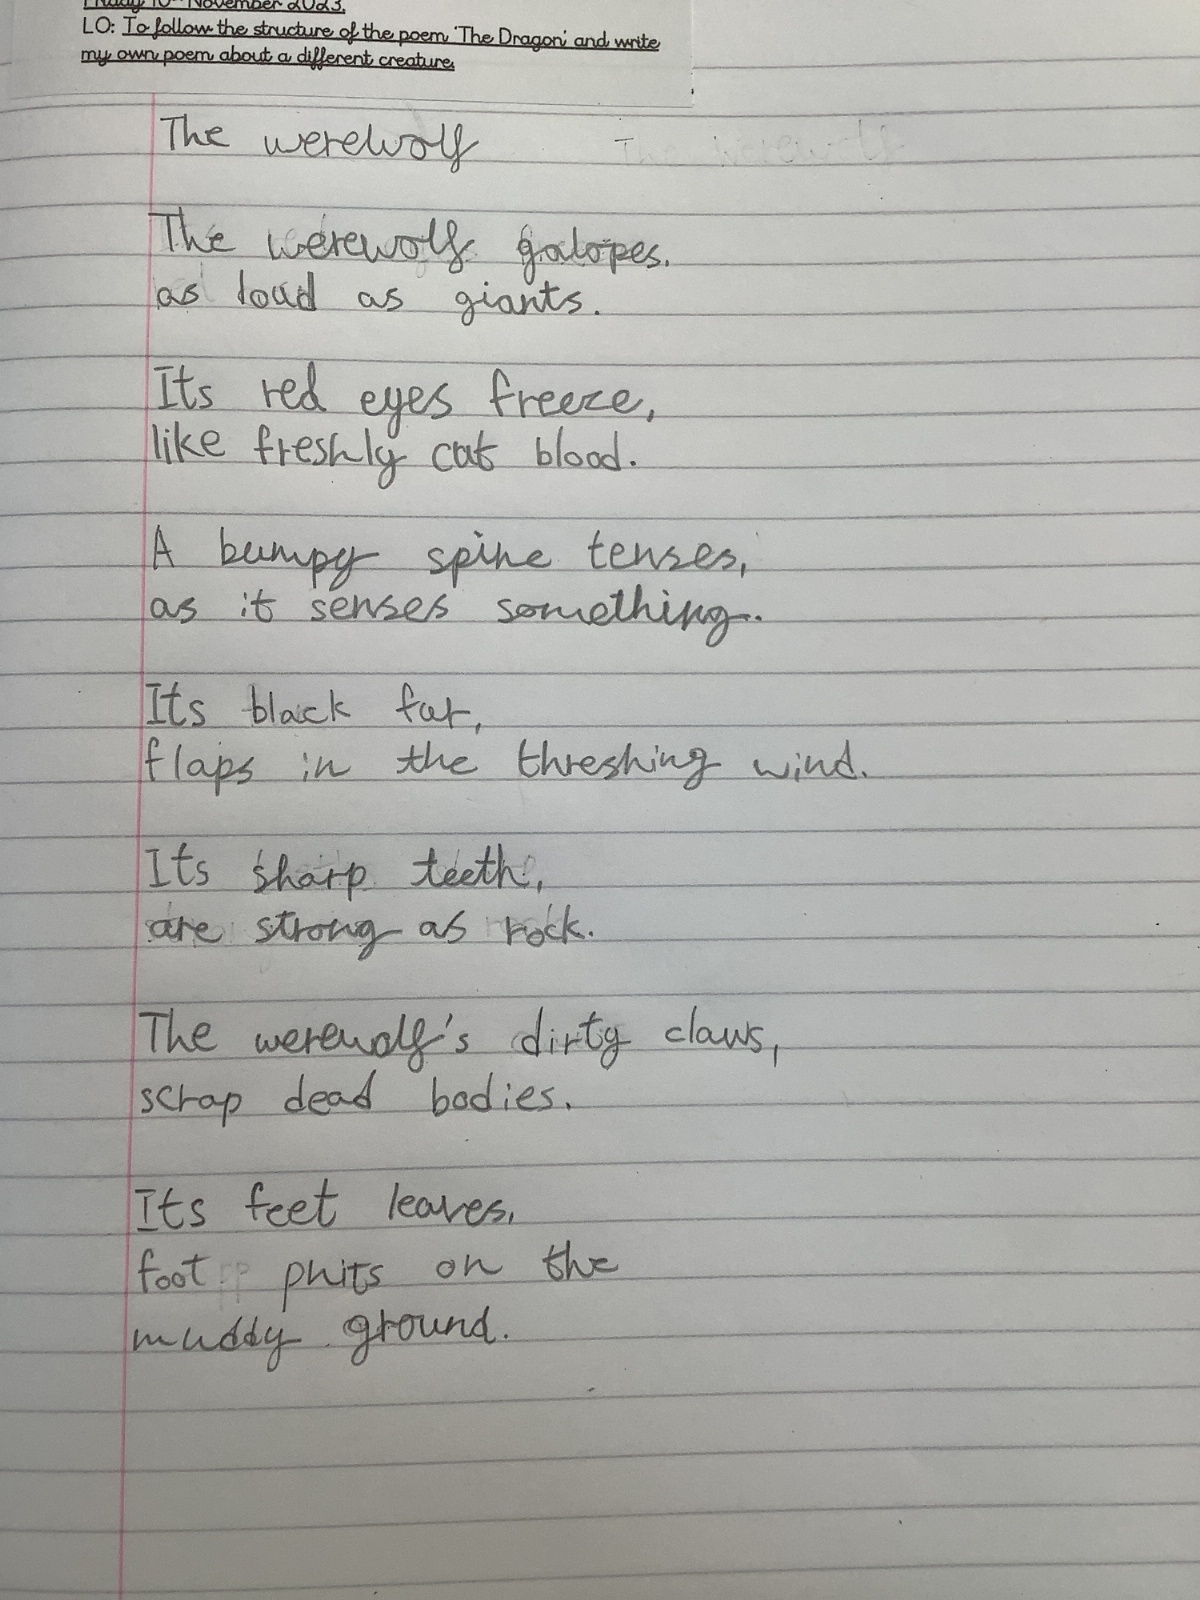 Friday 10th November 2023.
LO: To follow the structure of the poem 'The Dragon' and write
my own poem about a different creature.
The werewolf
The werewolf galopes.
as loud as giants.
Its red eyes freeze,
like freshly cut blood.
A bumpy spine tenses,
as it senses something.
Its black fur,
flaps in the threshing wind.
Its sharp teeth,
are strong as rock.
The werewolf's dirty claws,
scrap dead bodies.
Its feet leaves,
foot phits on the
muddy ground.